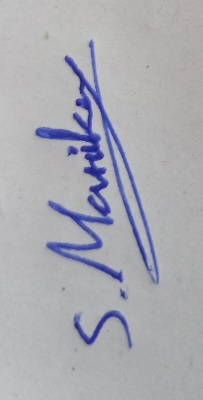 S. Manike